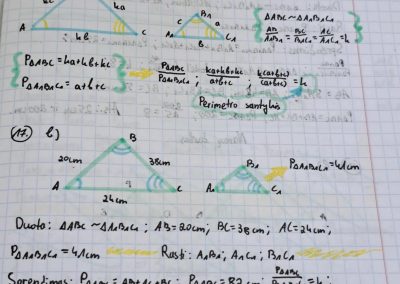 kc ka B₁
c a
A kb C A₁ b C₁
ΔABC ~ ΔA₁B₁C₁
AB/A₁B₁ = BC/B₁C₁ = AC/A₁C₁ = k
PΔABC = ka+kb+kc
PΔA₁B₁C₁ = a+b+c
PΔABC/PΔA₁B₁C₁ ; ka+kb+kc/a+b+c ; k(a+b+c)/(a+b+c) = k
Perimetro santykis
17. b)
B
20cm 38cm B₁ PΔA₁B₁C₁=41cm
A C A₁ C₁
24cm
Duota: ΔABC ~ ΔA₁B₁C₁ ; AB=20cm ; BC=38cm ; AC=24cm ;
PΔA₁B₁C₁ = 41cm Rasti: A₁B₁ ; A₁C₁ ; B₁C₁
Sprendimas: PΔABC = AB+AC+BC ; PΔABC = 82cm ; PΔABC = k ;